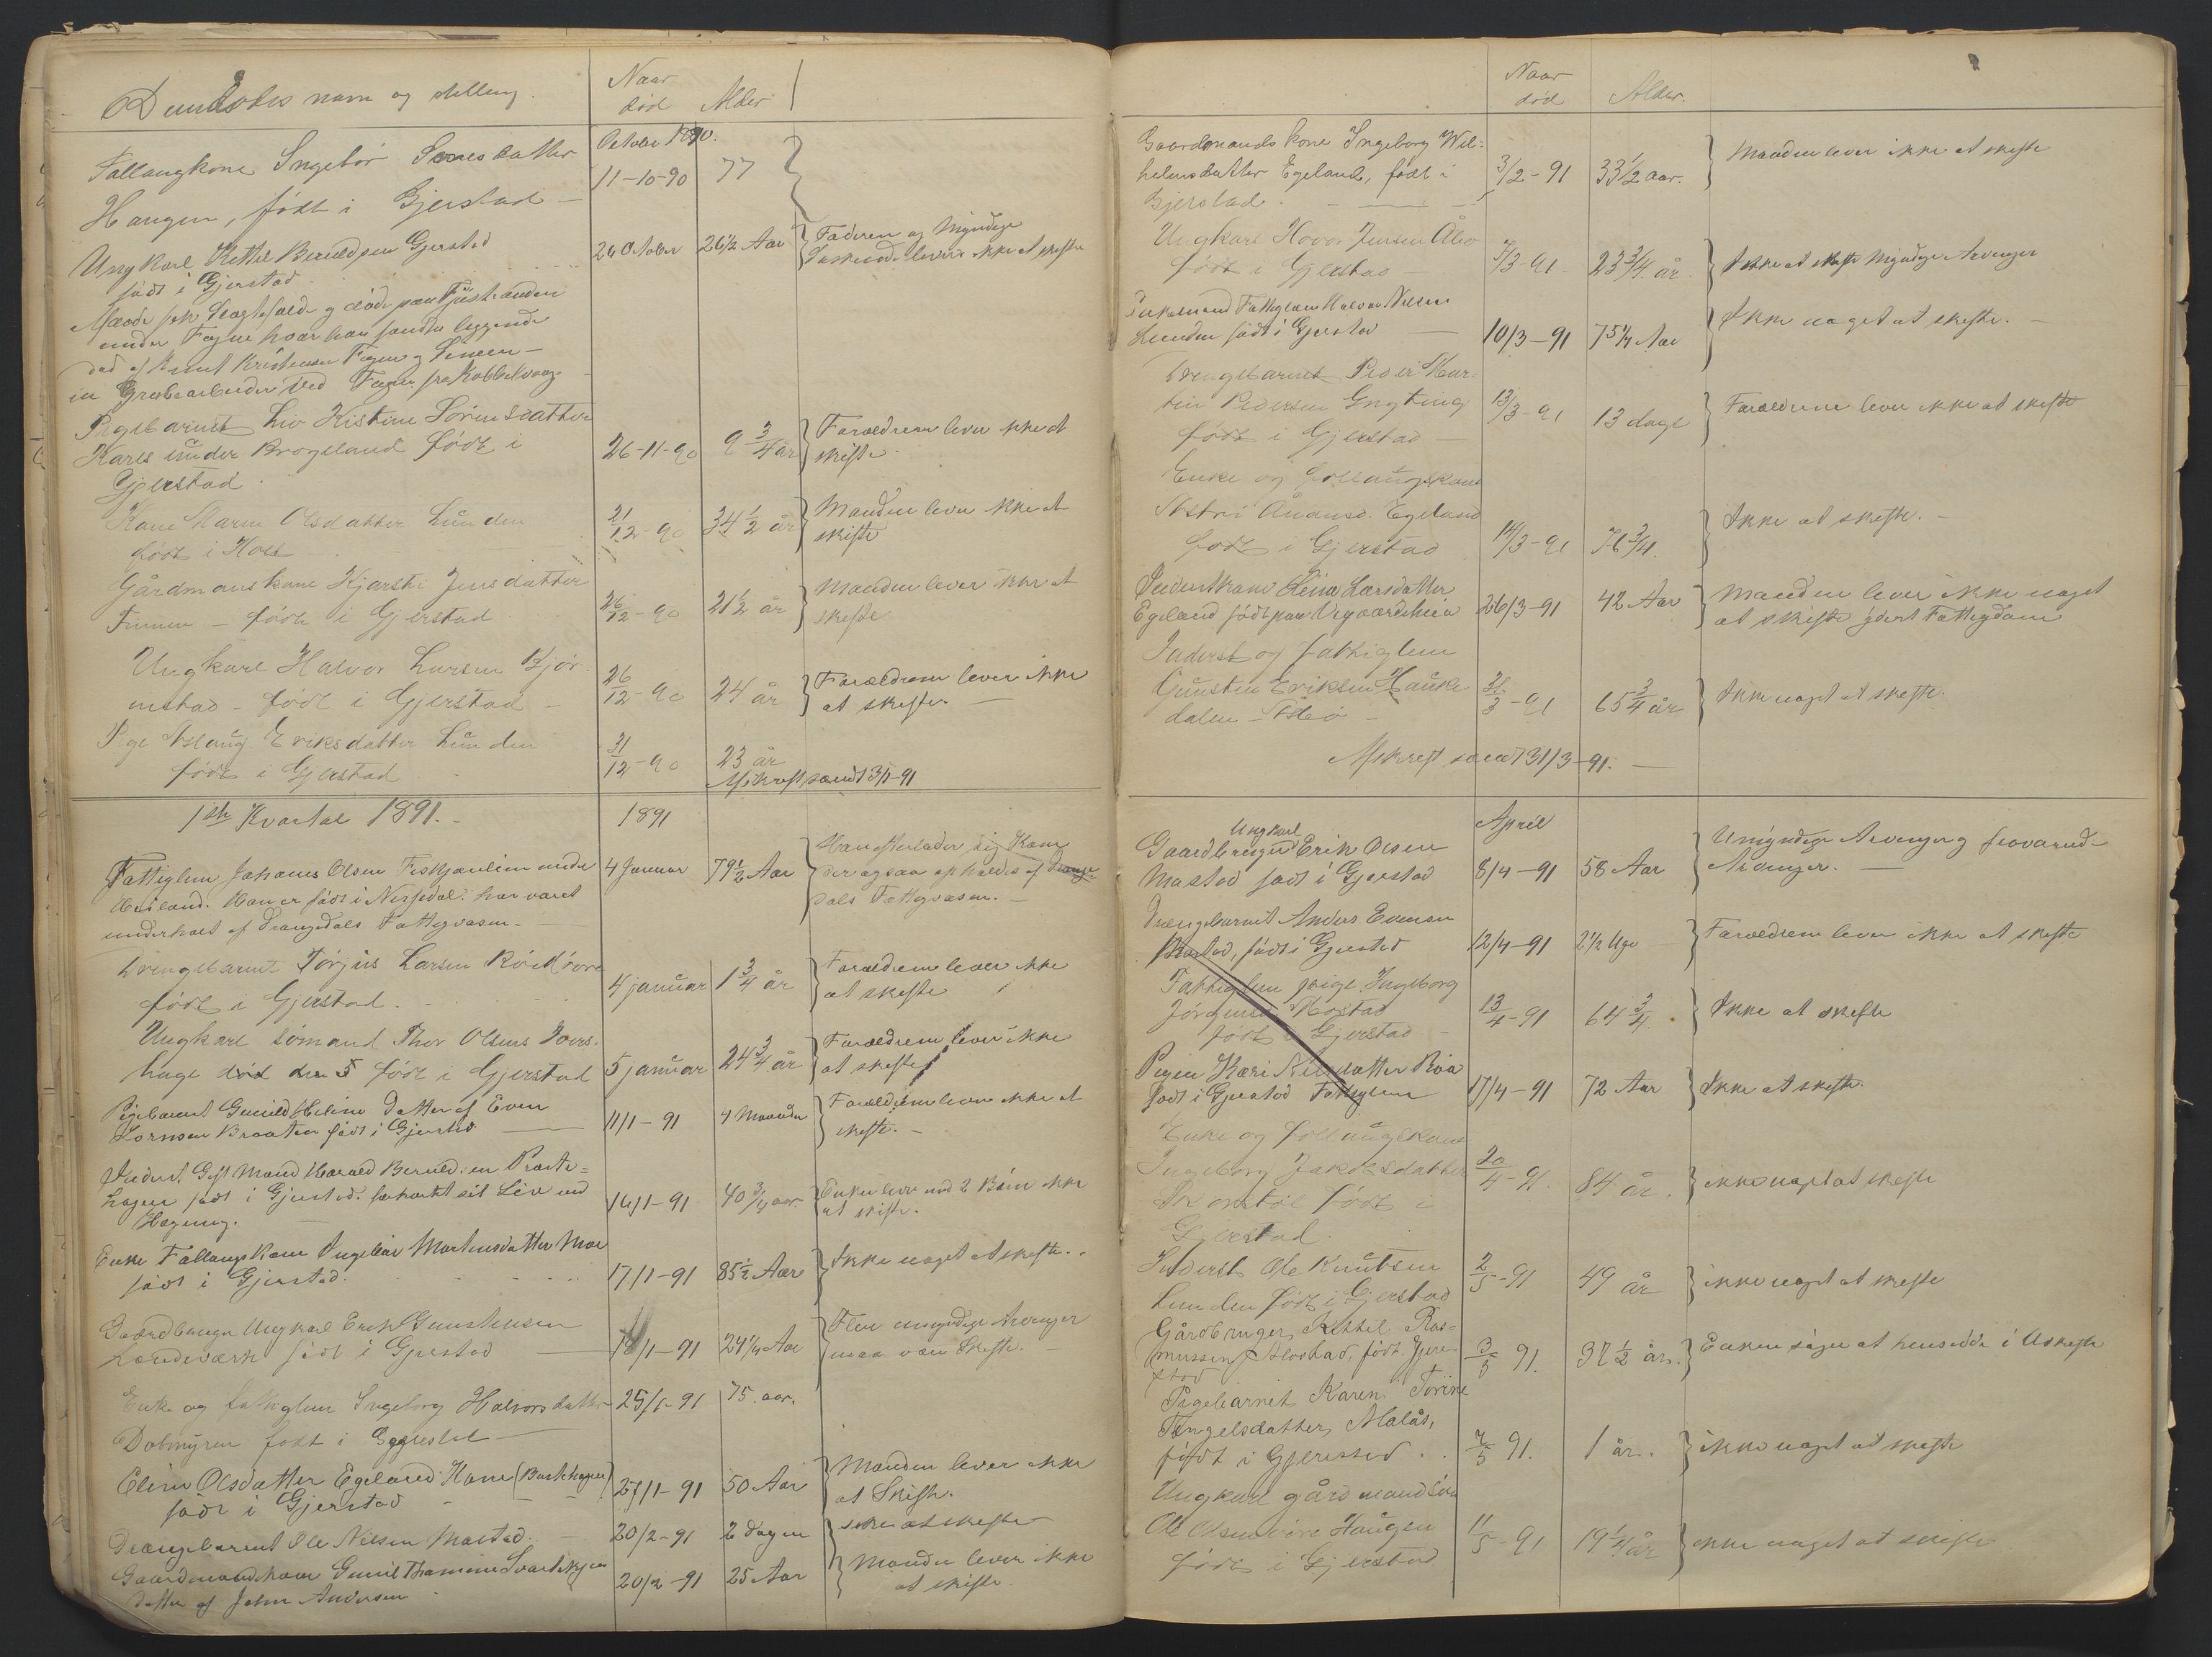 Den Dödes navn og stilling.
Naar död
Alder
October 1890.
Follaugkone Ingebor Sörensdatter
Haugen, født i Gjerstad
11-10-90 77
Ungkarl Kettel Beruldsen Gjerstad
født i Gjerstad
26 October 26 1/2 Aar
Faderen og Myndige
Söskende lever ikke at skifte
under Fogne hvor han fandtes liggende
død af Knut Kristensen Fogne og
Grubearbeider ved Fogne fra
Pigebarnet Liv Kistine Sörensdatter
Karls under Brogeland född i
Gjerstad.
26-11-90 9 3/4 år
Forældrene lever ikke at
skifte.
Kone Maren Olsdatter Lunden
født i Holt
21/12-90 34 1/2 år
Manden lever ikke at
skifte
Gårdmanskone Kjersti Jensdatter
født i Gjerstad
26/12-90 21 1/2 år
Manden lever ikke at
skifte
Ungkarl Halvor Larsen Bjor-
vestad - född i Gjerstad
26/12-90 24 år
Forældrene lever ikke
at skifte.
Pige Aslaug Eriksdatter Lunden
född i Gjerstad
31/12-90 23 år
Afskrift sendt 3/1-91
1ste Kvartal 1891.
1891
Fattiglem Johannes Olsen under
Han er född i Nissedal har været
underholdt af Drangedals Fattigvæsen.
4 Januar 79 1/2 Aar
Han efterlader sig Kone
der ogsaa opholdes af Drange-
dals Fattigvæsen.
Drengebarnet Törjus Larsen
född i Gjerstad.
4 januar 1 3/4 år
Forældrene lever ikke
at skifte
Ungkarl sömand Thor Olsens
hage död den 5 född i Gjerstad
5 januar 24 3/4 år
Forældrene lever ikke
at skifte
Pigebarnet Gunild Heline Datter af Even
Braaten född i Gjerstad
11/1-91 4 Maaneder
Forældrene lever ikke at
skifte.
Inderst Gift Mand Harald Beruldsen Præste-
hagen född i Gjerstad. forkortet sit Liv ved
Hægning.
14/1-91 40 3/4 aar
Enken lever med 2 Börn ikke
at skifte.
Enke Follaugskone Ingebor Mortensdatter Moe
född i Gjerstad.
17/1-91 85 1/2 Aar
Ikke noget at skifte.
Gaardbruger Ungkarl Erik Gunstensen
född i Gjerstad
18/1-91 24 1/4 Aar
Flere umyndige Arvinger
maa være Skifte.
Enke og fattiglem Ingeborg Halvorsdatter
Dalmyren født i Gjerestad
25/1-91 75 aar.
Elen Olsdatter Egeland Kone
född i Gjerstad
27/1-91 50 Aar
Manden lever ikke
at Skifte.
Drengebarnet Ole Nilsen Mostad.
20/2-91 2 dagen
ikke at skifte
Gaardmandskone Gunil Thamine
datter af John Andersen
20/2-91 25 Aar
Manden lever ikke
at skifte.
Naar död
Alder.
Gaardmands kone Ingeborg Wil-
helmsdatter Egeland, født i
Gjerstad.
3/2-91 33 1/2 aar.
Manden lever ikke at skifte
Ungkarl Hovor Jensen Åbo
född i Gjerstad
7/3-91 23 3/4 år
Ikke at skifte Myndige Arvinger
Enkemand Fattiglem Halvor Nilsen
Lunden född i Gjerstad
10/3-91 75 1/4 Aar
Ikke noget at skifte.
Drengebarnet Peder Mar-
tin Pedersen
född i Gjerstad
13/3-91 13 dage
Forældrene lever ikke at skifte
Enke og follaugskone
Astri Ånonsd. Egeland
född i Gjerstad
14/3-91 76 3/4.
Ikke at skifte.
Inderstkone Lina Larsdatter
Egeland född paa Vegaardsheia
26/3-91 42 Aar
Manden lever ikke noget
at skifte ydert Fattigdom
Inderst og fattiglem
Gunsten Eriksen Hauke-
dalen - Åbö
31/3-91 65 3/4 år
Ikke noget at skifte.
Afskrift sendt 31/3-91.
April
Ungkarl
Gaardbruger Erik Olsen
Mostad født i Gjerstad
8/4-91 58 Aar
Umyndige Arvinger og fraværende
Arvinger.
Drengebarnet Anders Evensen
född i Gjerstad
12/4-91 2 1/2 Uge
Forældrene lever ikke at skifte
Fattiglem pige Ingeborg
Jörgensd Mostad
född i Gjerstad
13/4-91 64 3/4.
Ikke at skifte
Pigen Kari Nilsdatter Röa
född i Gjerstad Fattiglem
17/4-91 72 Aar
Ikke at skifte.
Enke og follaugskone
Ingeborg Jakobsdatter
född i
Gjerstad.
20/4-91 84 år.
ikke noget at skifte
Inderst Ole Knutsen
Lunden född i Gjerstad
2/5-91 49 år
ikke noget at skifte
Gårdbruger, Kittil Ras-
mussen, født. Gjere-
stad
3/5 91. 37 1/2 år.
Enken siger at hensidde i Uskifte
Pigebarnet Karen Torine
Tengelsdatter, Alalås,
født i Gjerestad
7/5 91. 1 år.
ikke noget at skifte
Ungkarl gårdmandsön
Ole Olsen Haugen
född i Gjerstad
11/5-91 19 1/4 år
ikke noget at skifte